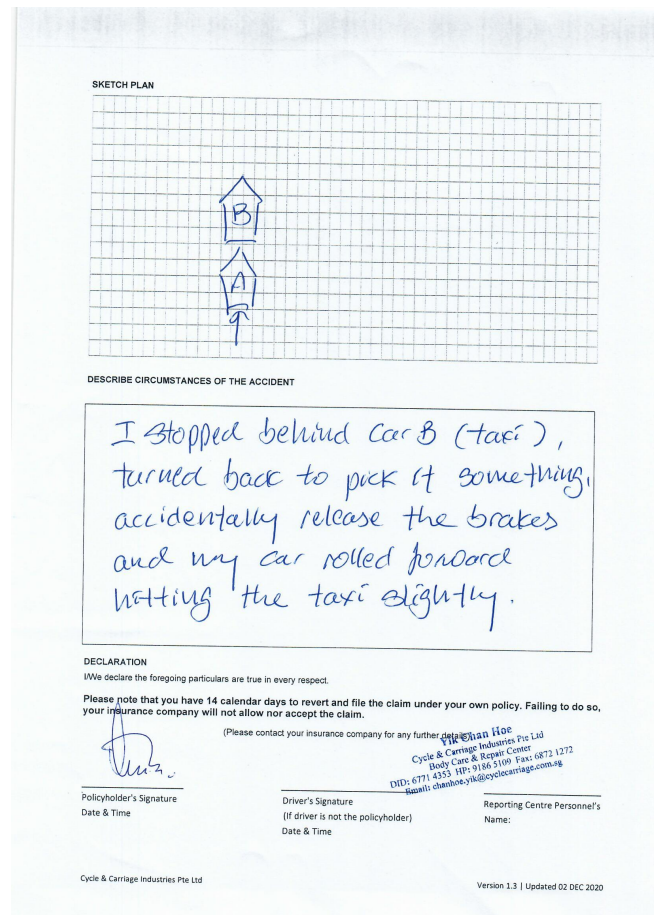 SKETCH PLAN
B
A
DESCRIBE CIRCUMSTANCES OF THE ACCIDENT
I stopped behind car B (taxi),
turned back to pick it something,
accidentally release the brakes
and my car rolled forward
hitting the taxi slightly.
DECLARATION
I/We declare the foregoing particulars are true in every respect.
Please note that you have 14 calendar days to revert and file the claim under your own policy. Failing to do so,
your insurance company will not allow nor accept the claim.
(Please contact your insurance company for any further details)
Yik Chan Hoe
Cycle & Carriage Industries Pte Ltd
Body Care & Repair Center
DID: 6771 4353 HP: 9186 5109 Fax: 6872 1272
Email: chanhoe.yik@cyclecarriage.com.sg
Policyholder's Signature
Date & Time
Driver's Signature
(If driver is not the policyholder)
Date & Time
Reporting Centre Personnel's
Name:
Cycle & Carriage Industries Pte Ltd
Version 1.3 | Updated 02 DEC 2020